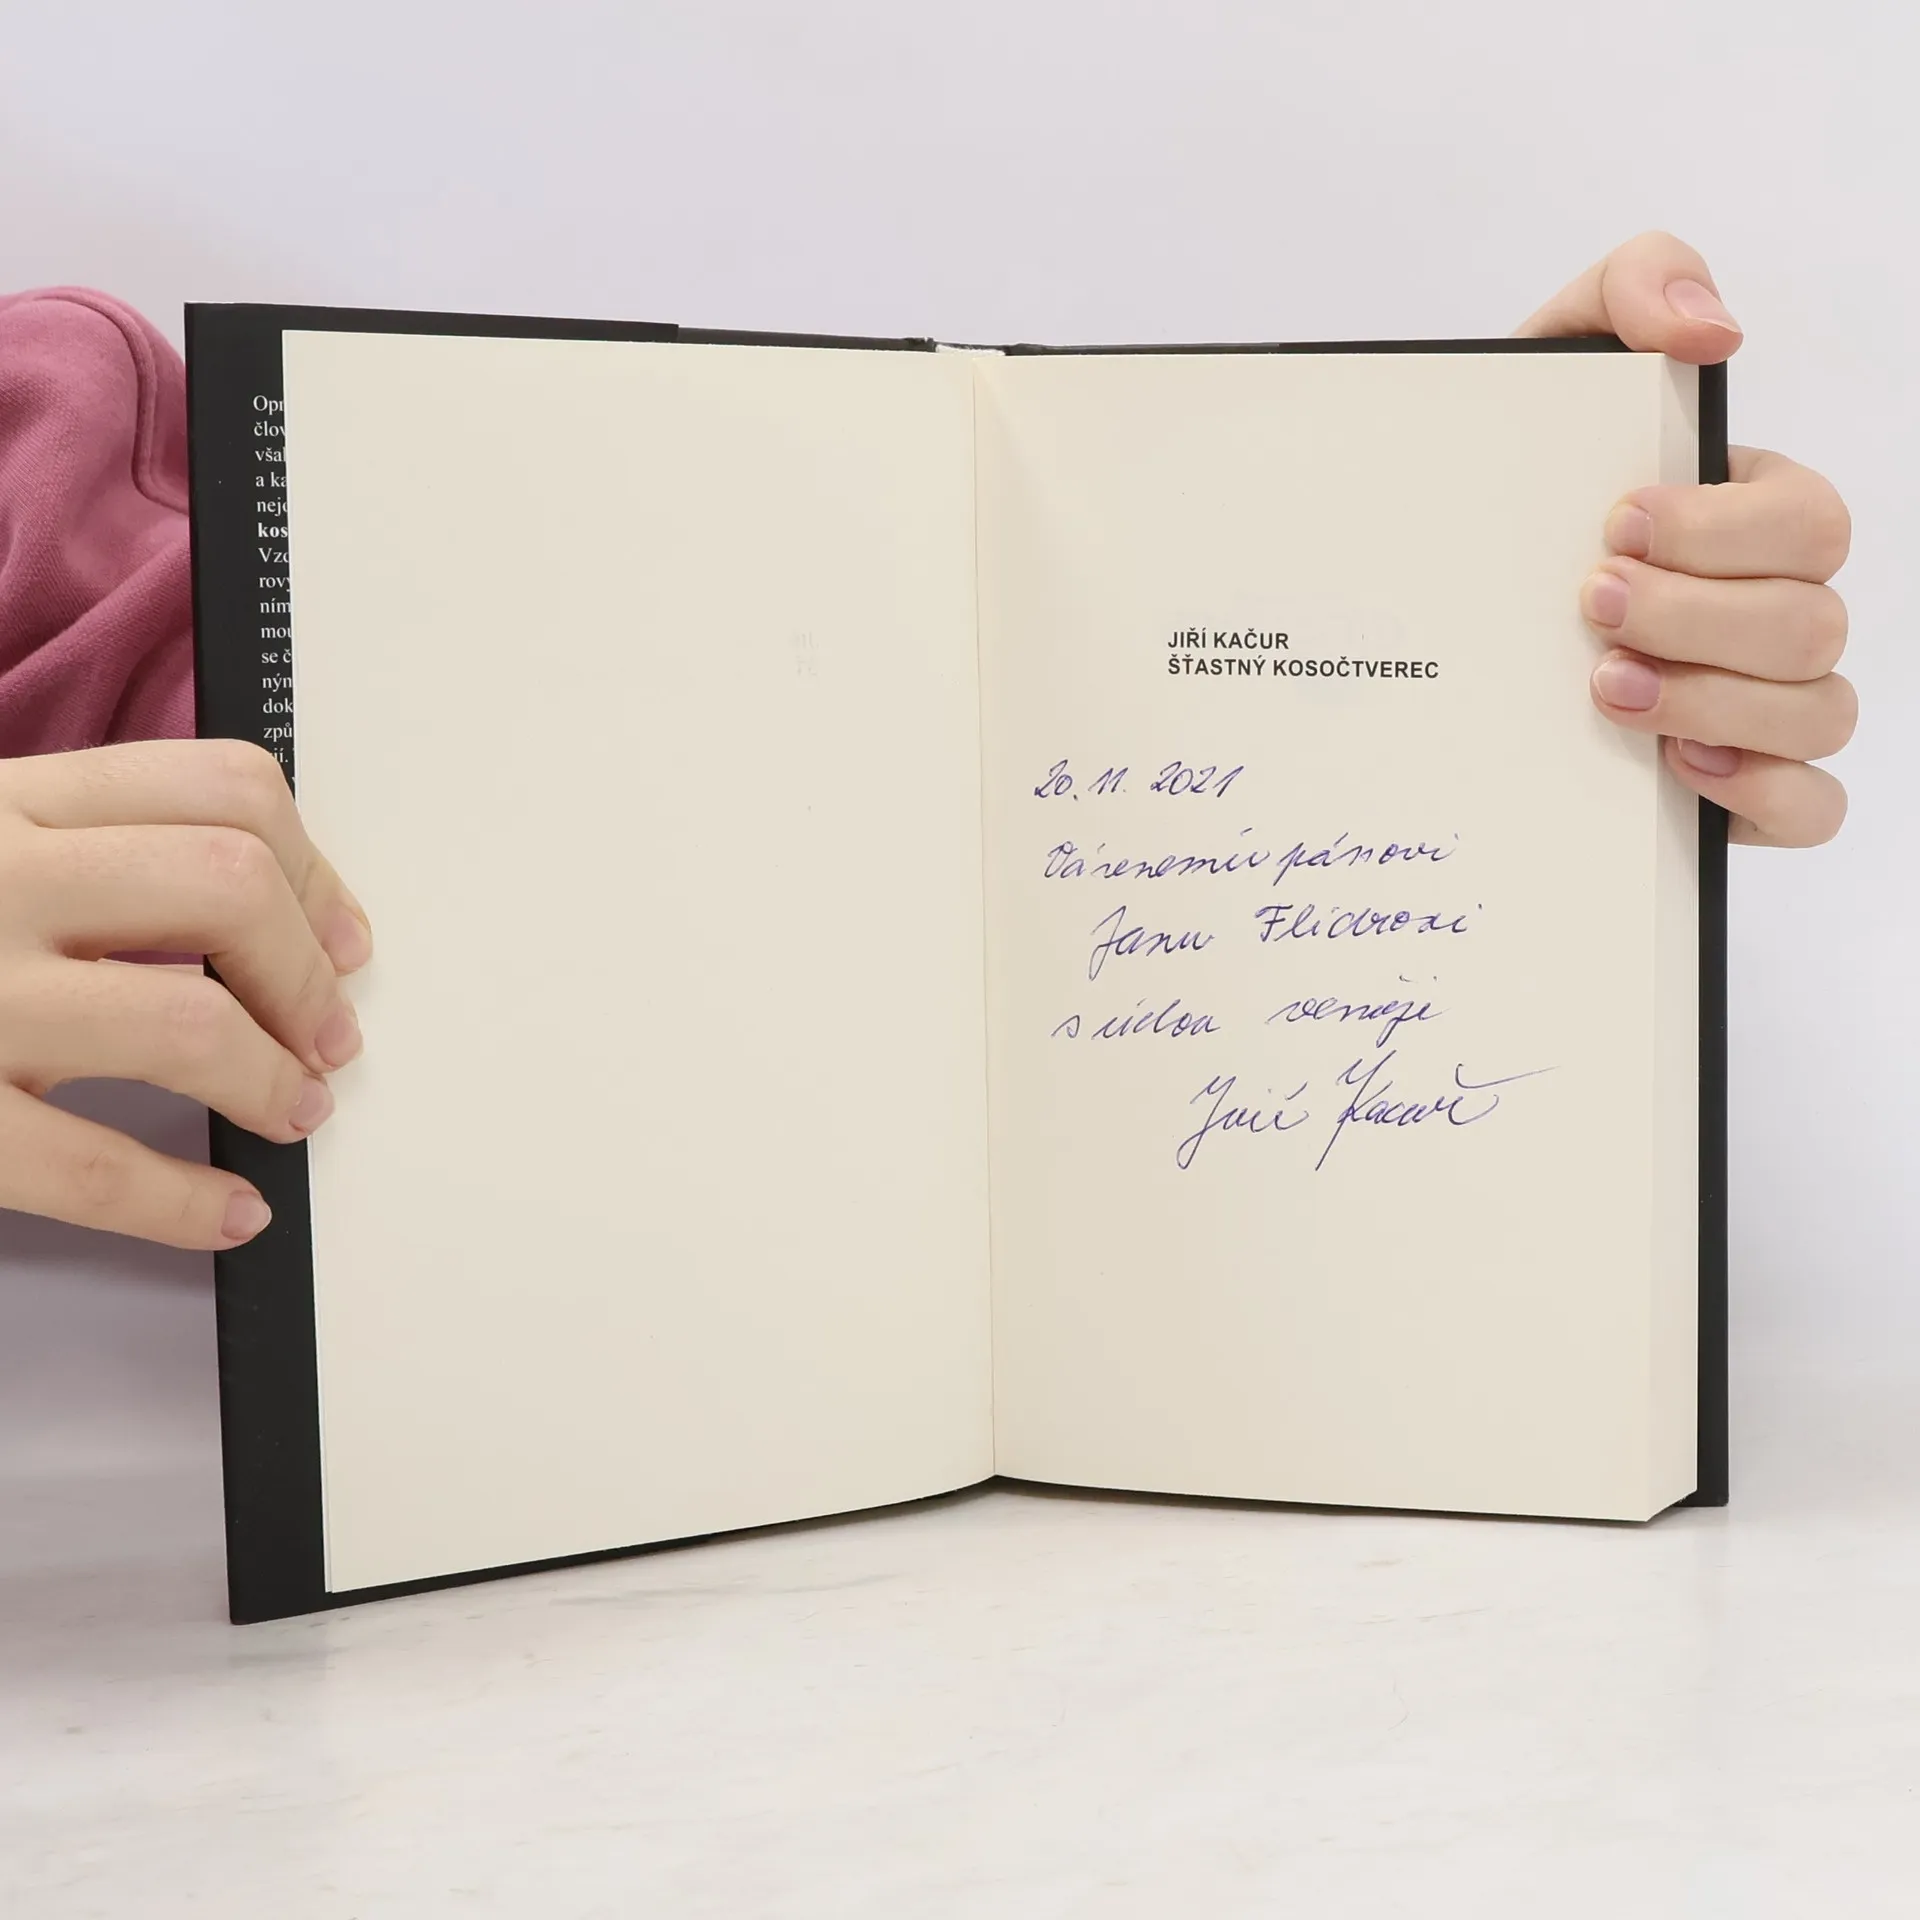 Opr
člov
však
a ka
nejd
kos
Vzd
rový
ním
mou
se č
ným
dok
způ
jí.
JIŘÍ KAČUR
ŠŤASTNÝ KOSOČTVEREC
20. 11. 2021
Váženému pánovi
Janu Flídrovi
s úctou věnuje
Jiří Kačur